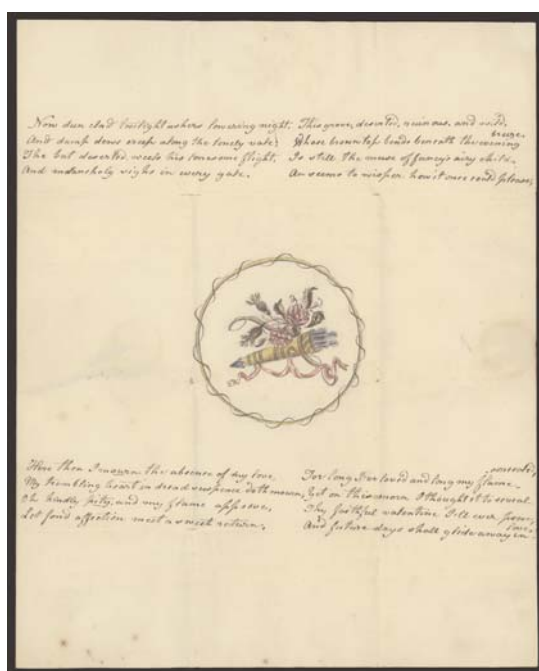 Now dun clad twilight ushers lowering night,
And damp dews creep along the lonely vale;
The bat deserted, seeks his lonesome flight,
And melancholy sighs in every gale.
This grove, deserted, ruinous, and wild,
Whose brown top bends beneath the evening breeze
Is still the muse of fancy's airy child
An seems to wisper how it once could please;
Here then I mourn the absence of my love,
My trembling heart in dread suspence doth mourn,
Oh kindly pity, and my flame approve,
Let fond affection meet a sweet return.
For long I've loved and long my flame concealed,
Yet on this morn I thought it to reveal
Thy faithful valentine I'll ever prove,
And future days shall glide away in love